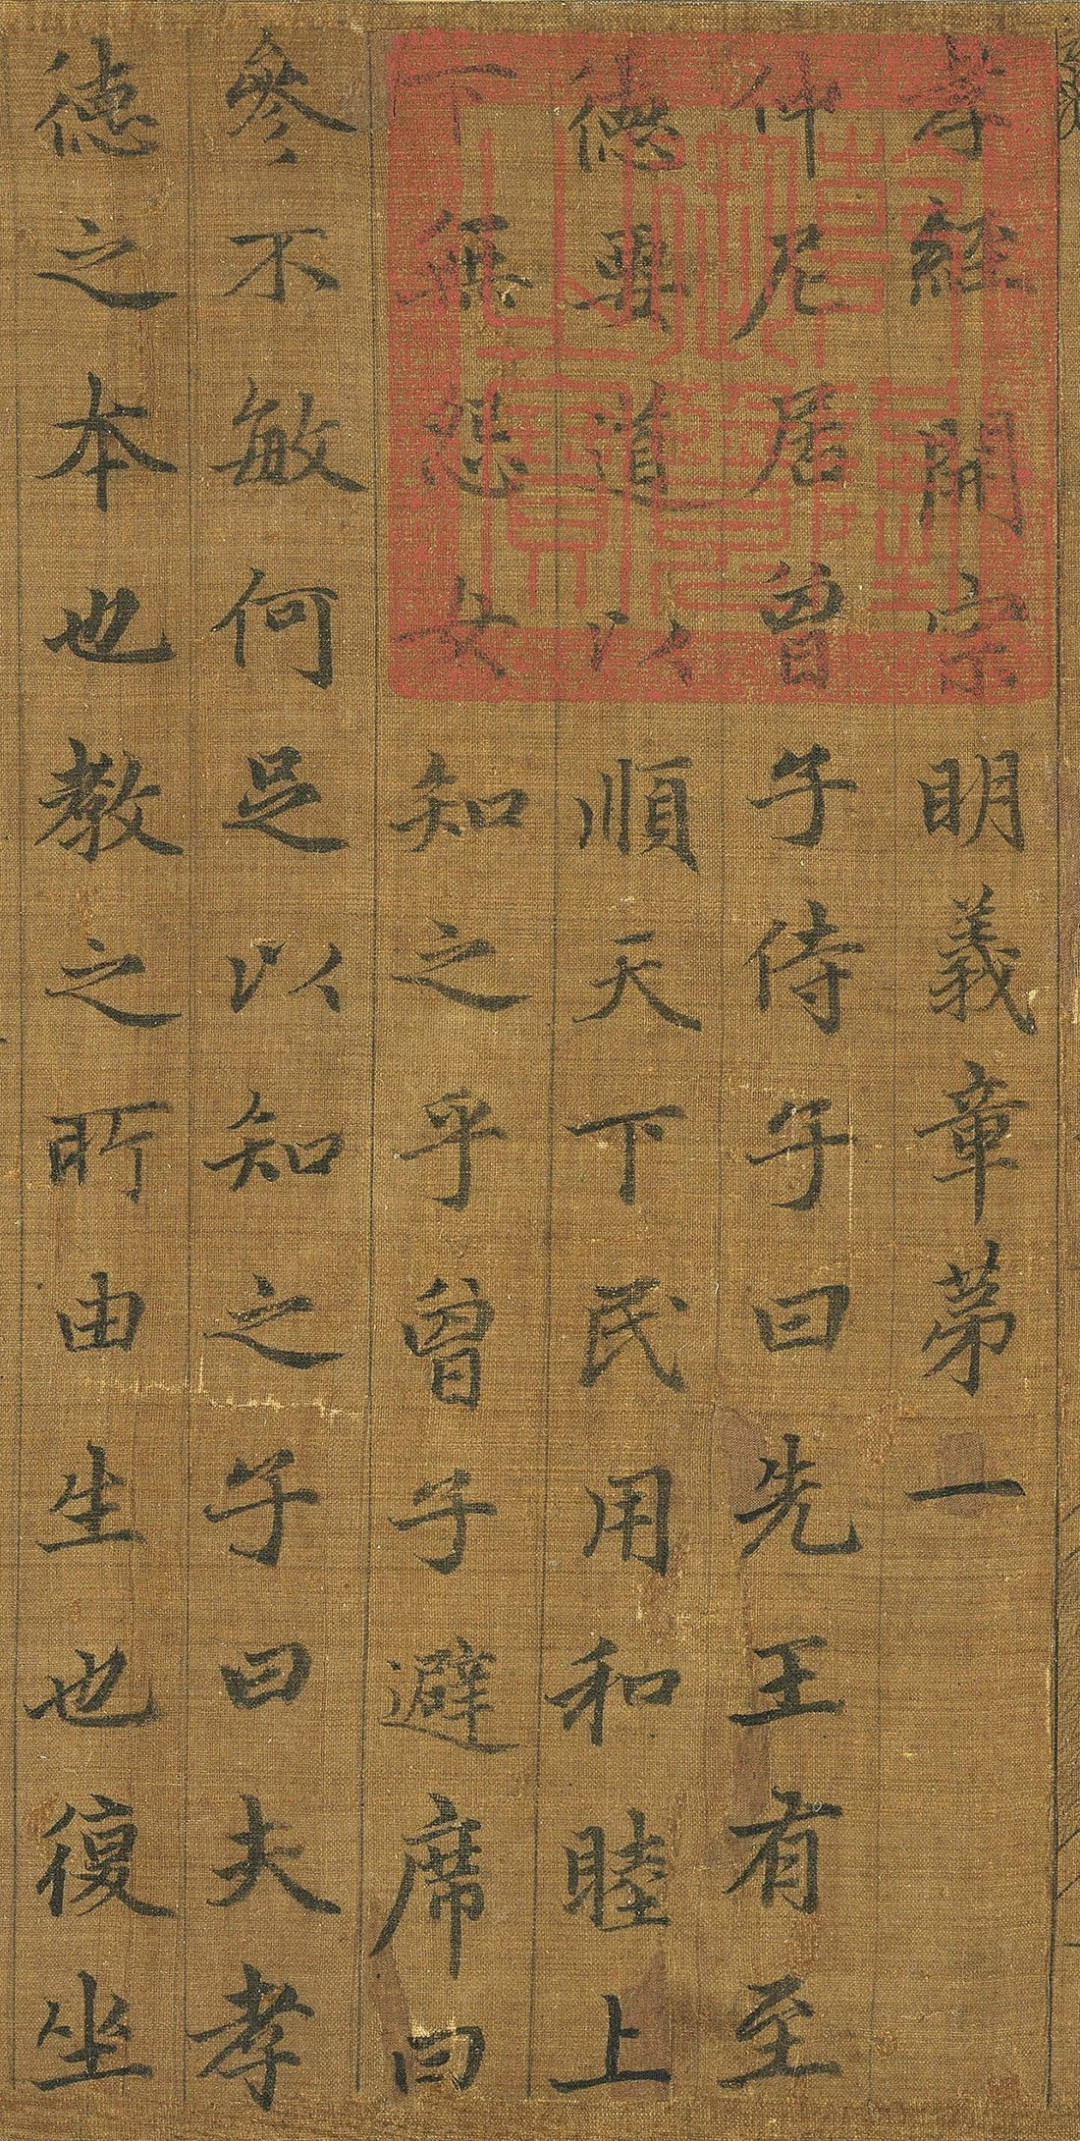 孝經開宗明義章苐一
仲尼居曾子侍子曰先王有至
德要道以順天下民用和睦上
下無怨女知之乎曾子避席曰
參不敏何足以知之子曰夫孝
德之本也教之所由生也復坐